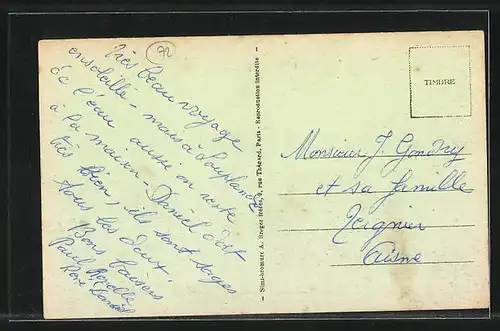 72
Très beau voyage
ensoleillé - mais à
à l'eau aussi on reste
à la maison - Daniel doit
très bien, ils sont sages
tous les deux.
Bons baisers
Paul
Simi-bromure A. Breger frères, 9, rue Thénard, Paris - Reproduction interdite
TIMBRE
Monsieur J. Gondry
et sa famille
Tergnier
Aisne